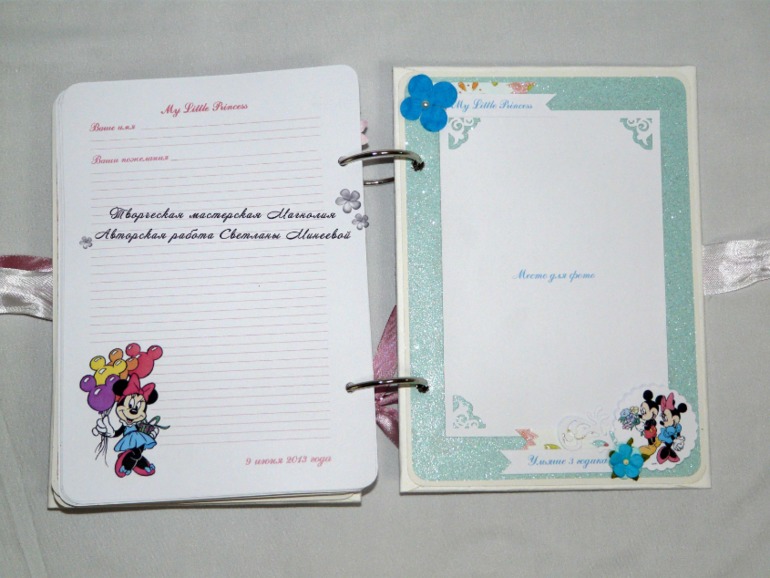 My Little Princess
Ваше имя
Ваши пожелания
Творческая мастерская Магнолия
Авторская работа Светланы Минеевой
9 июня 2013 года
My Little Princess
Место для фото
Ульяне 3 годика